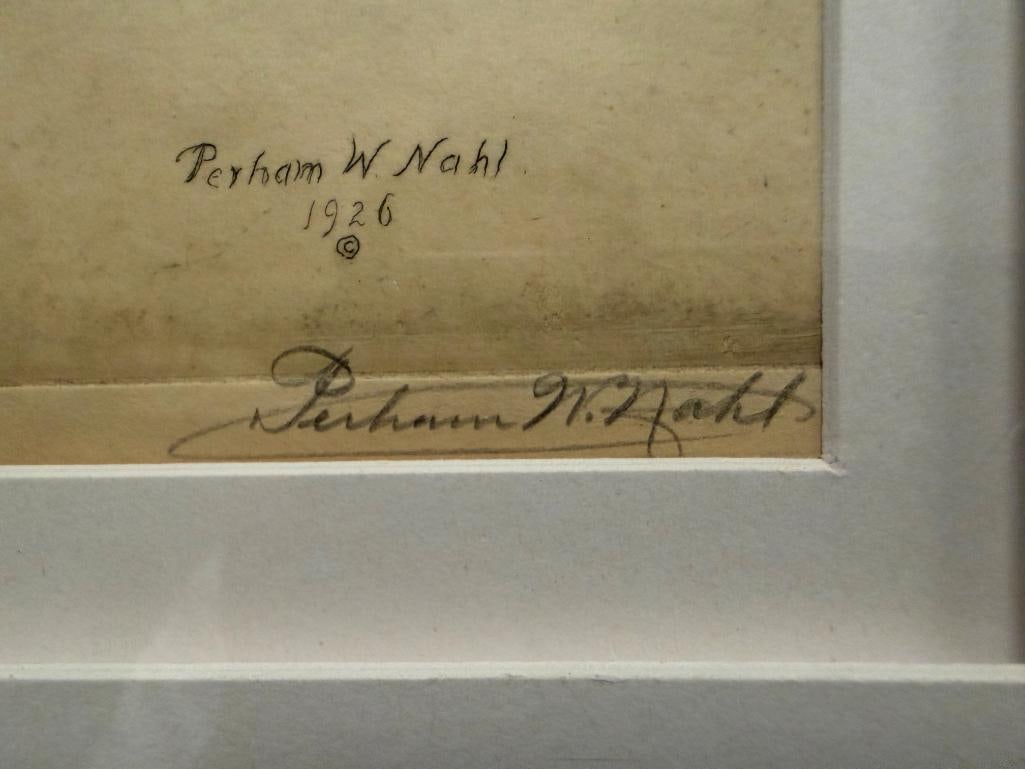 Perham W. Nahl.
1926
©
Perham W. Nahl